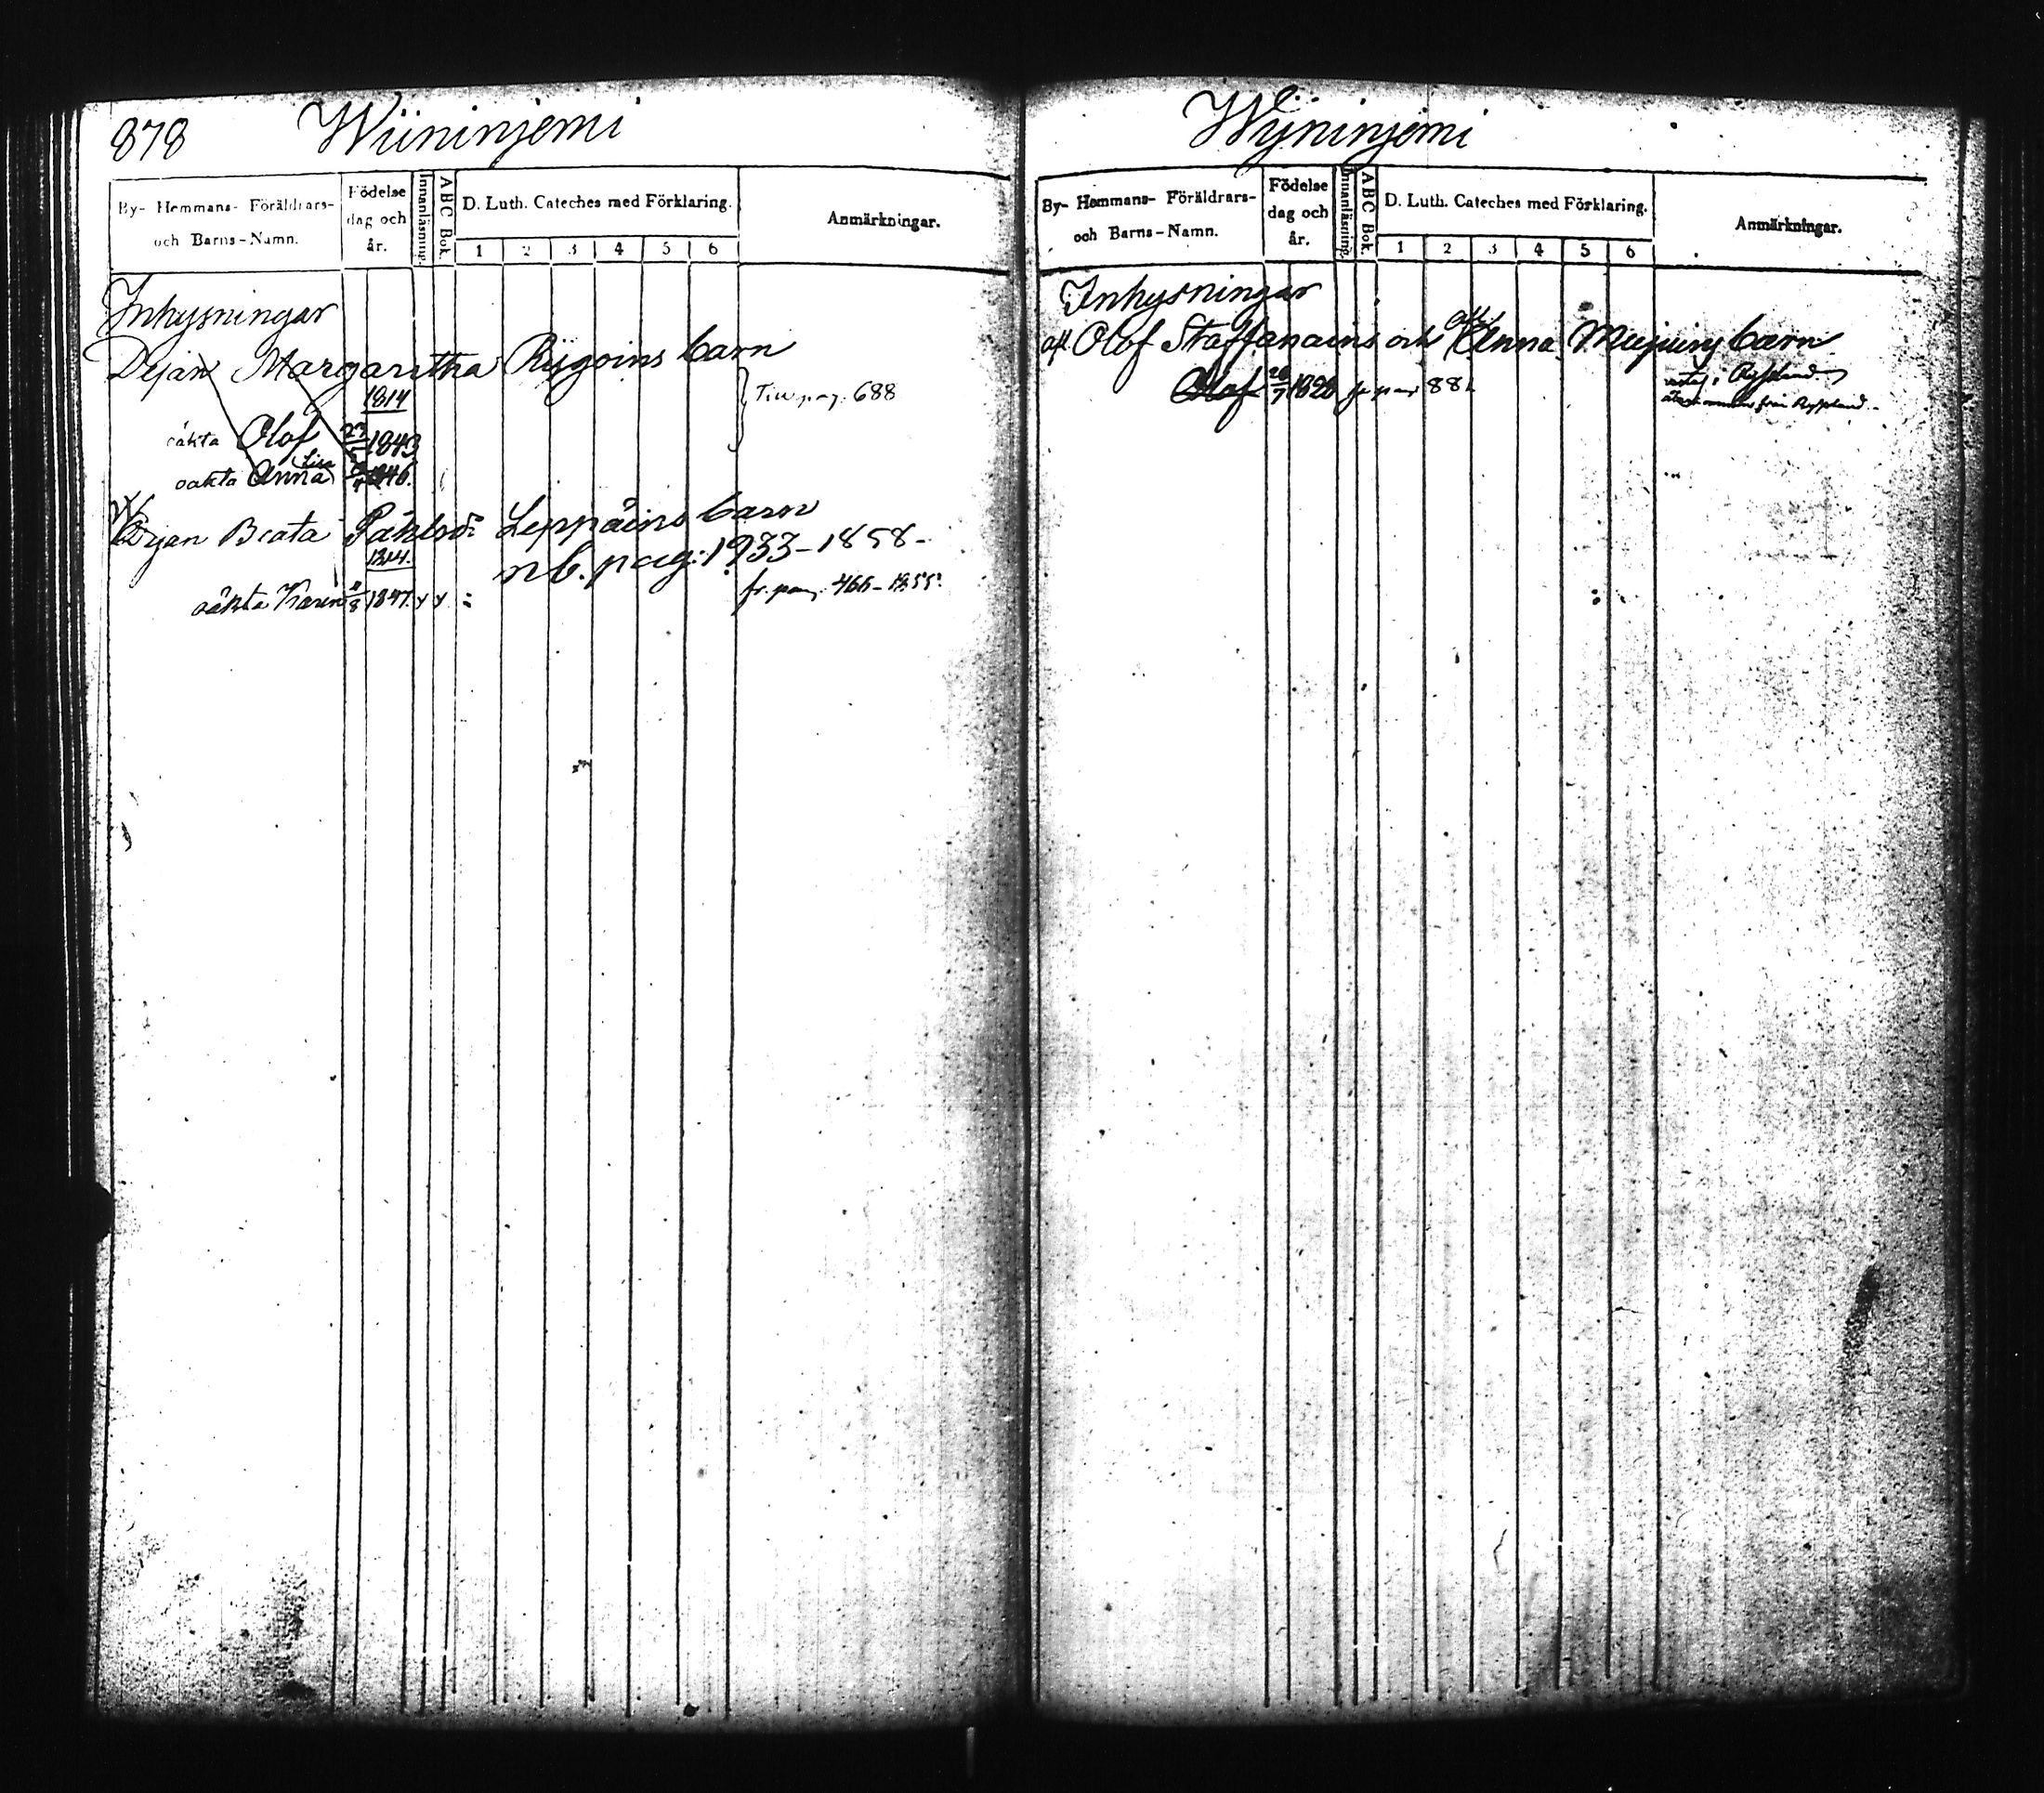 878 Wiininjemi
By- Hemmans- Föräldrars- och Barns-Namn.
Födelse dag och år.
Innanläsning.
A B C Bok.
D. Luth. Cateches med Förklaring.
1 2 3 4 5 6
Anmärkningar.
Inhysningar
Dejan Margaretha barn
1814
Till pag. 688
oäkta Olof 1843
oäkta Anna Lisa 1846.
Beata Leppäins barn
1814. nb. pag: 1933-1858-
oäkta Karin 1847. y y fr. pag. 1855.
Wÿninjemi
By- Hemmans- Föräldrars- och Barns-Namn.
Födelse dag och år.
Innanläsning.
A B C Bok.
D. Luth. Cateches med Förklaring.
1 2 3 4 5 6
Anmärkningar.
Inhysningar
afl Olof Staffanains och Anna barn
Olof 26/7 fr pag i Ryssland
från Ryssland